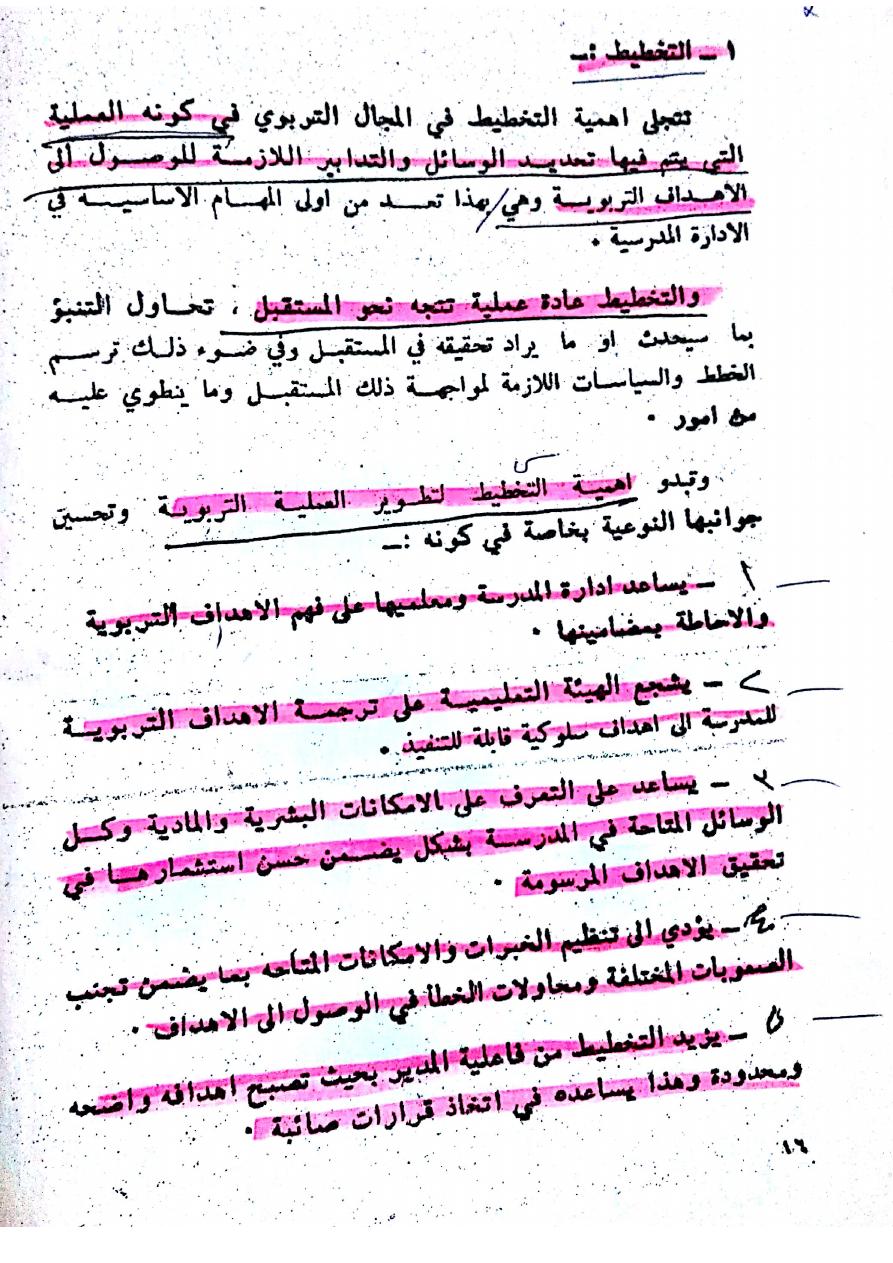 ١ ــ التخطيط :ــ
تتجلى اهمية التخطيط في المجال التربوي في كونه العملية
التي يتم فيها تحديد الوسائل والتدابير اللازمة للوصول الى
الاهداف التربوية وهي بهذا تعد من اولى المهام الاساسيه في
الادارة المدرسية .
والتخطيط عادة عملية تتجه نحو المستقبل ، تحاول التنبؤ
بما سيحدث او ما يراد تحقيقه في المستقبل وفي ضوء ذلك ترسم
الخطط والسياسات اللازمة لمواجهة ذلك المستقبل وما ينطوي عليه
من امور .
وتبدو اهمية التخطيط لتطوير العملية التربوية وتحسين
جوانبها النوعية بخاصة في كونه :ــ
١ ــ يساعد ادارة المدرسة ومعلميها على فهم الاهداف التربوية
والاحاطة بمضامينها .
٢ ــ يشجع الهيئة التعليمية على ترجمة الاهداف التربوية
للمدرسة الى اهداف سلوكية قابلة للتنفيذ .
٣ ــ يساعد على التعرف على الامكانات البشرية والمادية وكل
الوسائل المتاحة في المدرسة بشكل يضمن حسن استثمارها في
تحقيق الاهداف المرسومة .
٤ ــ يؤدي الى تنظيم الخبرات والامكانات المتاحه بما يضمن تجنب
الصعوبات المختلفة ومحاولات الخطا في الوصول الى الاهداف .
٥ ــ يزيد التخطيط من فاعلية المدير بحيث تصبح اهدافه واضحه
ومحدودة وهذا يساعده في اتخاذ قرارات صائبة .
١٦